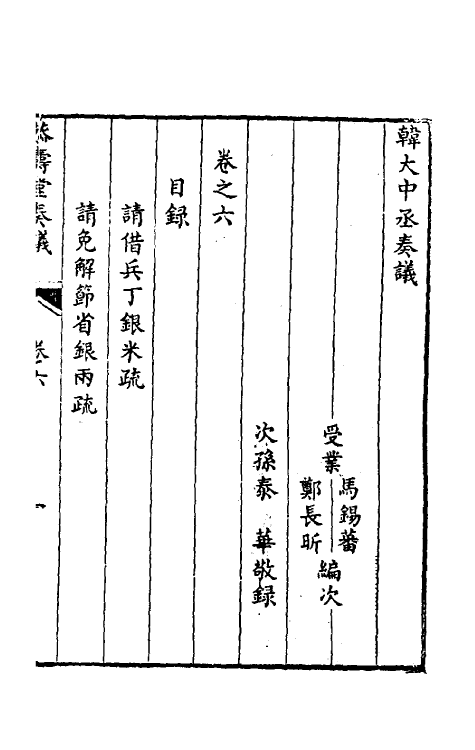 韓大中丞奏議
受業
馬錫蕃
鄭長昕
編次
次孫泰華敬録
卷之六
目録
請借兵丁銀米疏
請免解節省銀兩疏
壽堂奏議
卷六
一